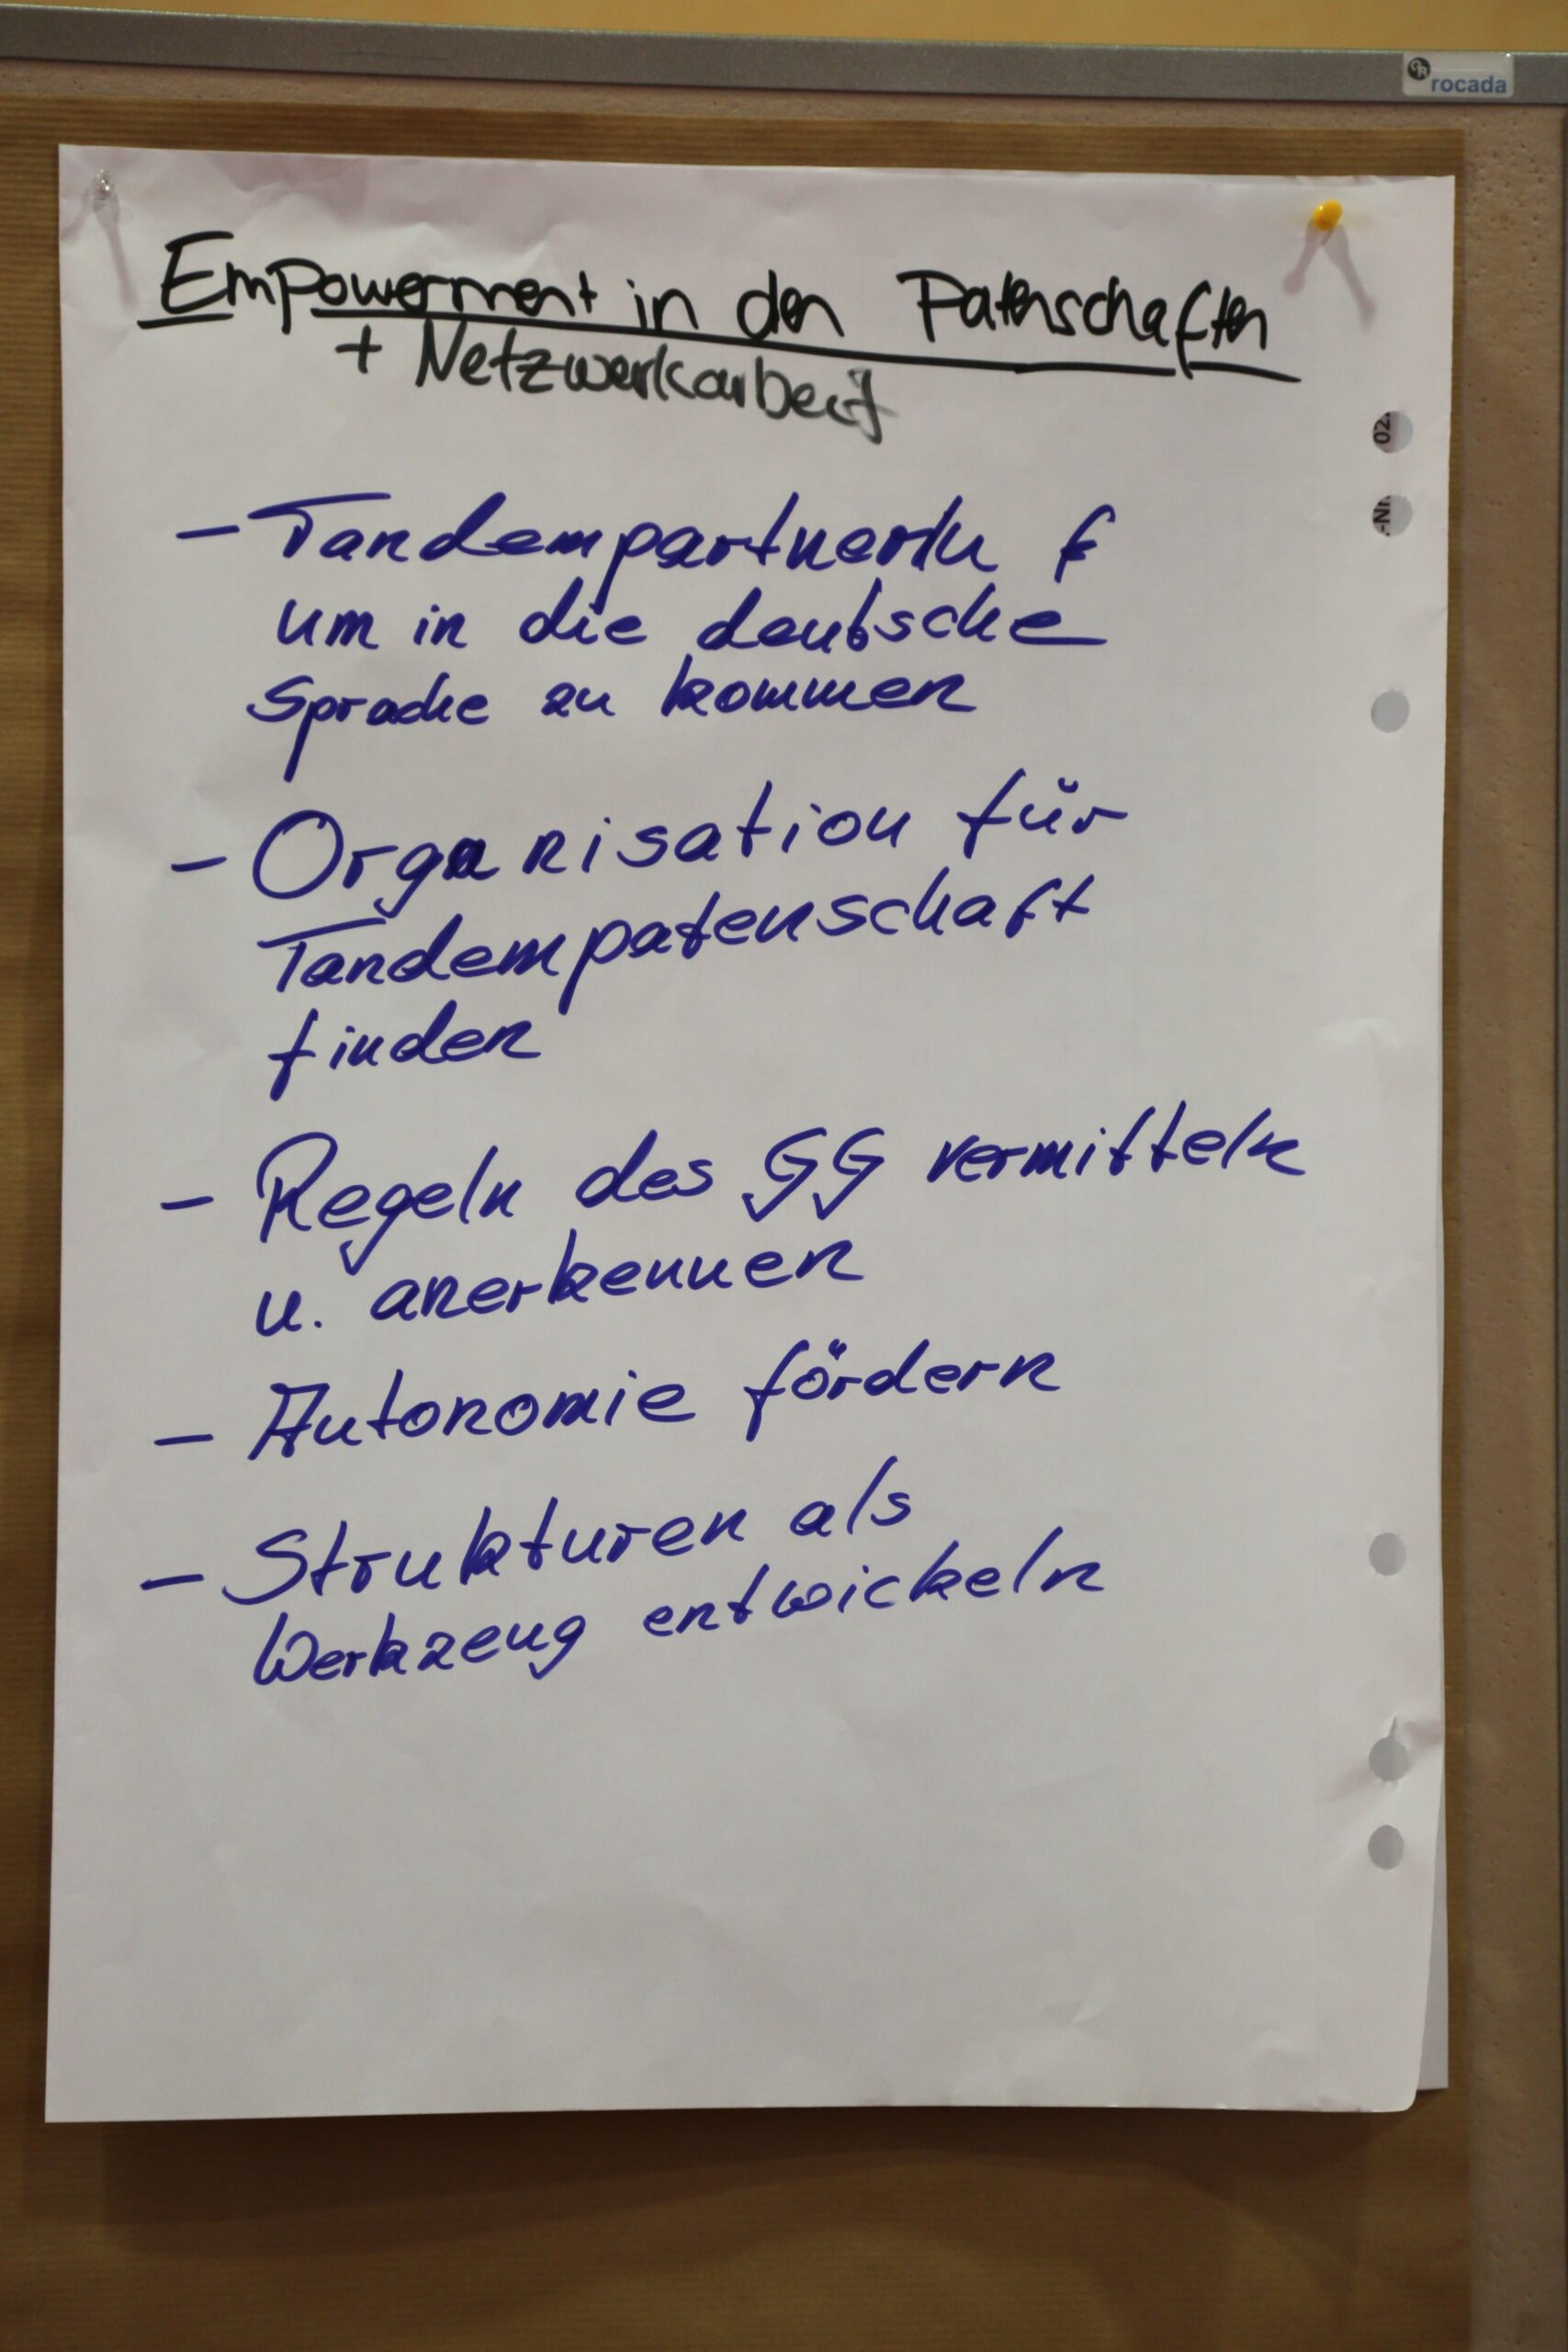 rocada
Empowerment in den Patenschaften
+ Netzwerkarbeit
02.
-Nr
- TandempartnerIn f
um in die deutsche
Sprache zu kommen
- Organisation für
Tandempatenschaft
finden
- Regeln des GG vermitteln
u. anerkennen
- Autonomie fördern
- Strukturen als
Werkzeug entwickeln